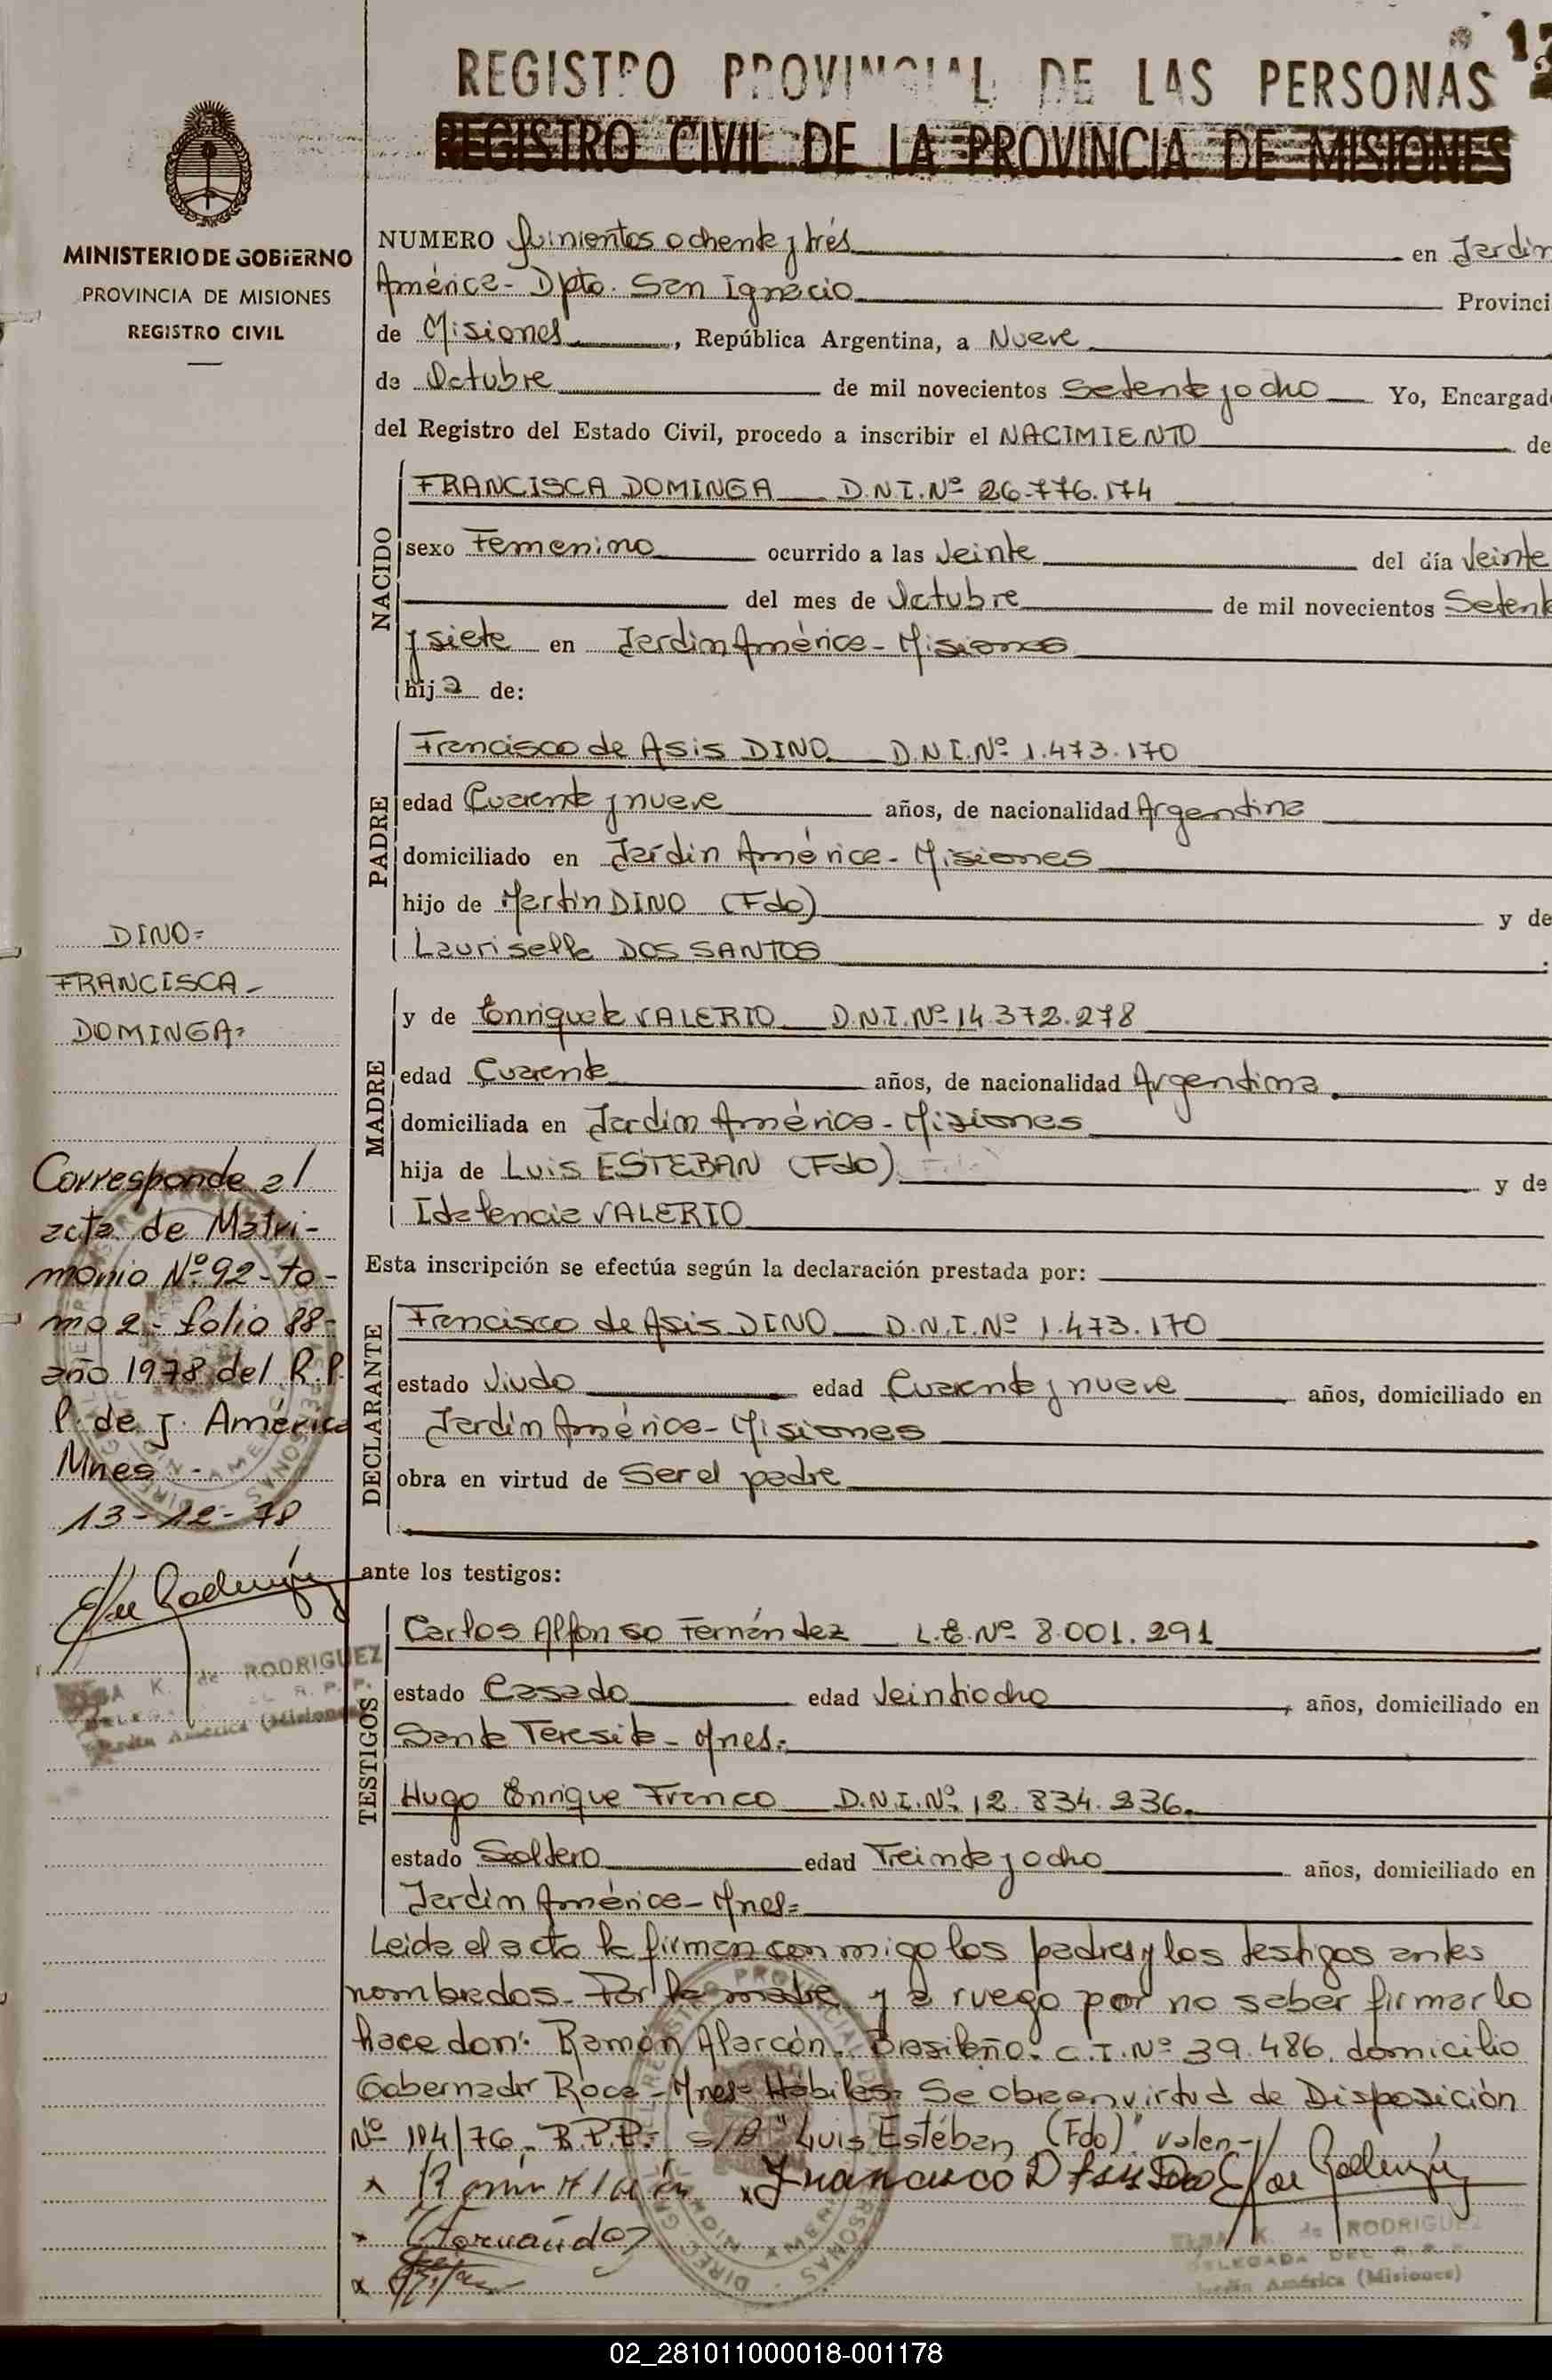 REGISTRO PROVINCIAL DE LAS PERSONAS
REGISTRO CIVIL DE LA PROVINCIA DE MISIONES
MINISTERIO DE GOBIERNO
PROVINCIA DE MISIONES
REGISTRO CIVIL
NUMERO Quinientos ochenta y trés en Jardín
América - Dpto. San Ignacio Provinci
de Misiones, República Argentina, a Nueve
de Octubre de mil novecientos Setenta y ocho Yo, Encargad
del Registro del Estado Civil, procedo a inscribir el NACIMIENTO de
NACIDO
FRANCISCA DOMINGA D.N.I.Nº 26.776.174
sexo Femenino ocurrido a las Veinte del día Veinte
del mes de Octubre de mil novecientos Setent
y siete en Jardin América - Misiones
hija de:
PADRE
Francisco de Asis DINO D.N.I.Nº 1.473.170
edad Cuarenta y nueve años, de nacionalidad Argentina
domiciliado en Jardin América - Misiones
hijo de Martin DINO (Fdo) y de
Laurisella DOS SANTOS
MADRE
y de Enriqueta VALERIO D.N.I.Nº 14.372.278
edad Cuarenta años, de nacionalidad Argentina
domiciliada en Jardin América - Misiones
hija de Luis ESTEBAN (Fdo) y de
Idalencia VALERIO
Esta inscripción se efectúa según la declaración prestada por:
DECLARANTE
Francisco de Asis DINO D.N.I.Nº 1.473.170
estado Viudo edad Cuarenta y nueve años, domiciliado en
Jardin América - Misiones
obra en virtud de Ser el padre
ante los testigos:
TESTIGOS
Carlos Alfonso Fernández L.E.Nº 8.001.291
estado Casado edad Veintiocho, años, domiciliado en
Santa Teresita - Mnes.
Hugo Enrique Franco D.N.I.Nº 12.834.236
estado Soltero edad Treinta y ocho años, domiciliado en
Jardin América - Mnes=
Leida el acta la firman conmigo los padres y los testigos antes
nombrados. Por la madre y a ruego por no saber firmar lo
hace don: Ramón Alarcón. Brasileño. C.I.Nº 39.486. domicilio
Gobernador Roca - Mnes- Hábiles. Se obra en virtud de Disposición
Nº 104/76 - R.P.P.- s/B "Luis Estéban (Fdo)" valen-
Fernández
DINO=
FRANCISCA -
DOMINGA=
Corresponde al
acta de Matri-
monio Nº 92 - to-
mo 2 - folio 88 -
año 1978 del R.P.
P. de J. América
Mnes -
13-12-78
ELSA K. de RODRIGUEZ
DELEGADA DEL R. P. P.
Jardín América (Misiones)
ELSA K. de RODRIGUEZ
DELEGADA DEL R. P. P.
Jardín América (Misiones)
02_281011000018-001178